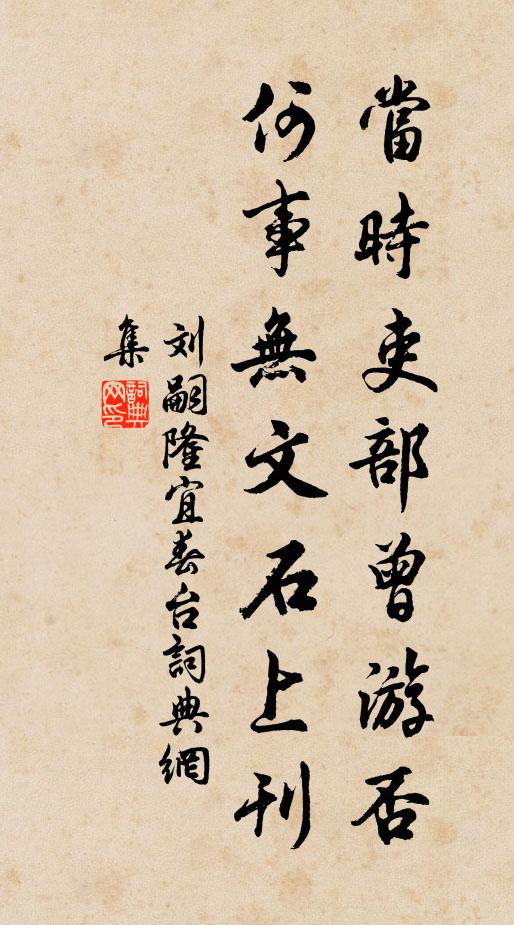 當時吏部曾游否
何事無文石上刊
刘嗣隆宜春台詞典網
集
詞典
网印